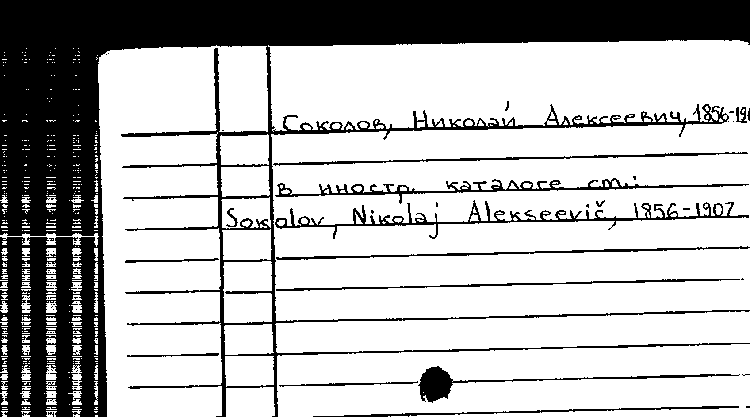 Соколов, Николай Алексеевич, 1856-190
в иностр. каталоге см.:
Sokolov, Nikolaj Alekseevič, 1856-1907